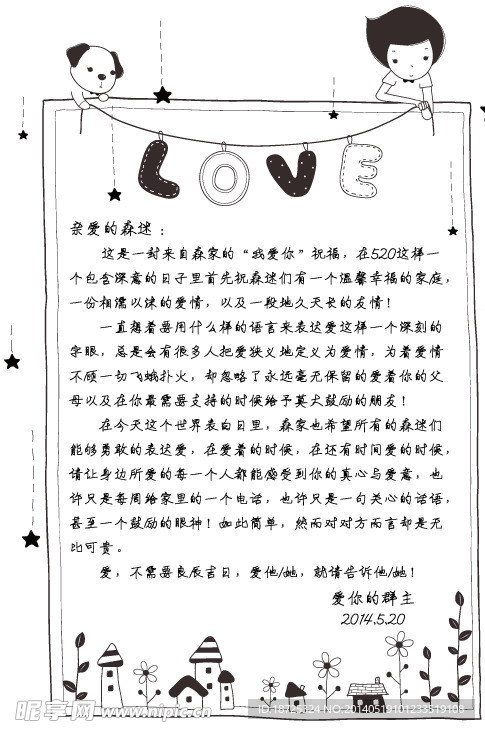 LOVE
亲爱的森迷：
这是一封来自森家的“我爱你”祝福，在520这样一
个包含深意的日子里首先祝森迷们有一个温馨幸福的家庭，
一份相濡以沫的爱情，以及一段地久天长的友情！
一直想着要用什么样的语言来表达爱这样一个深刻的
字眼，总是会有很多人把爱狭义地定义为爱情，为着爱情
不顾一切飞蛾扑火，却忽略了永远毫无保留的爱着你的父
母以及在你最需要支持的时候给予莫大鼓励的朋友！
在今天这个世界表白日里，森家也希望所有的森迷们
能够勇敢的表达爱，在爱着的时候，在还有时间爱的时候，
请让身边所爱的每一个人都能感受到你的真心与爱意，也
许只是每周给家里的一个电话，也许只是一句关心的话语，
甚至一个鼓励的眼神！如此简单，然而对对方而言却是无
比可贵。
爱，不需要良辰吉日，爱他/她，就请告诉他/她！
爱你的群主
2014.5.20
昵享网 www.nipic.cn
NO:20140519101233519108